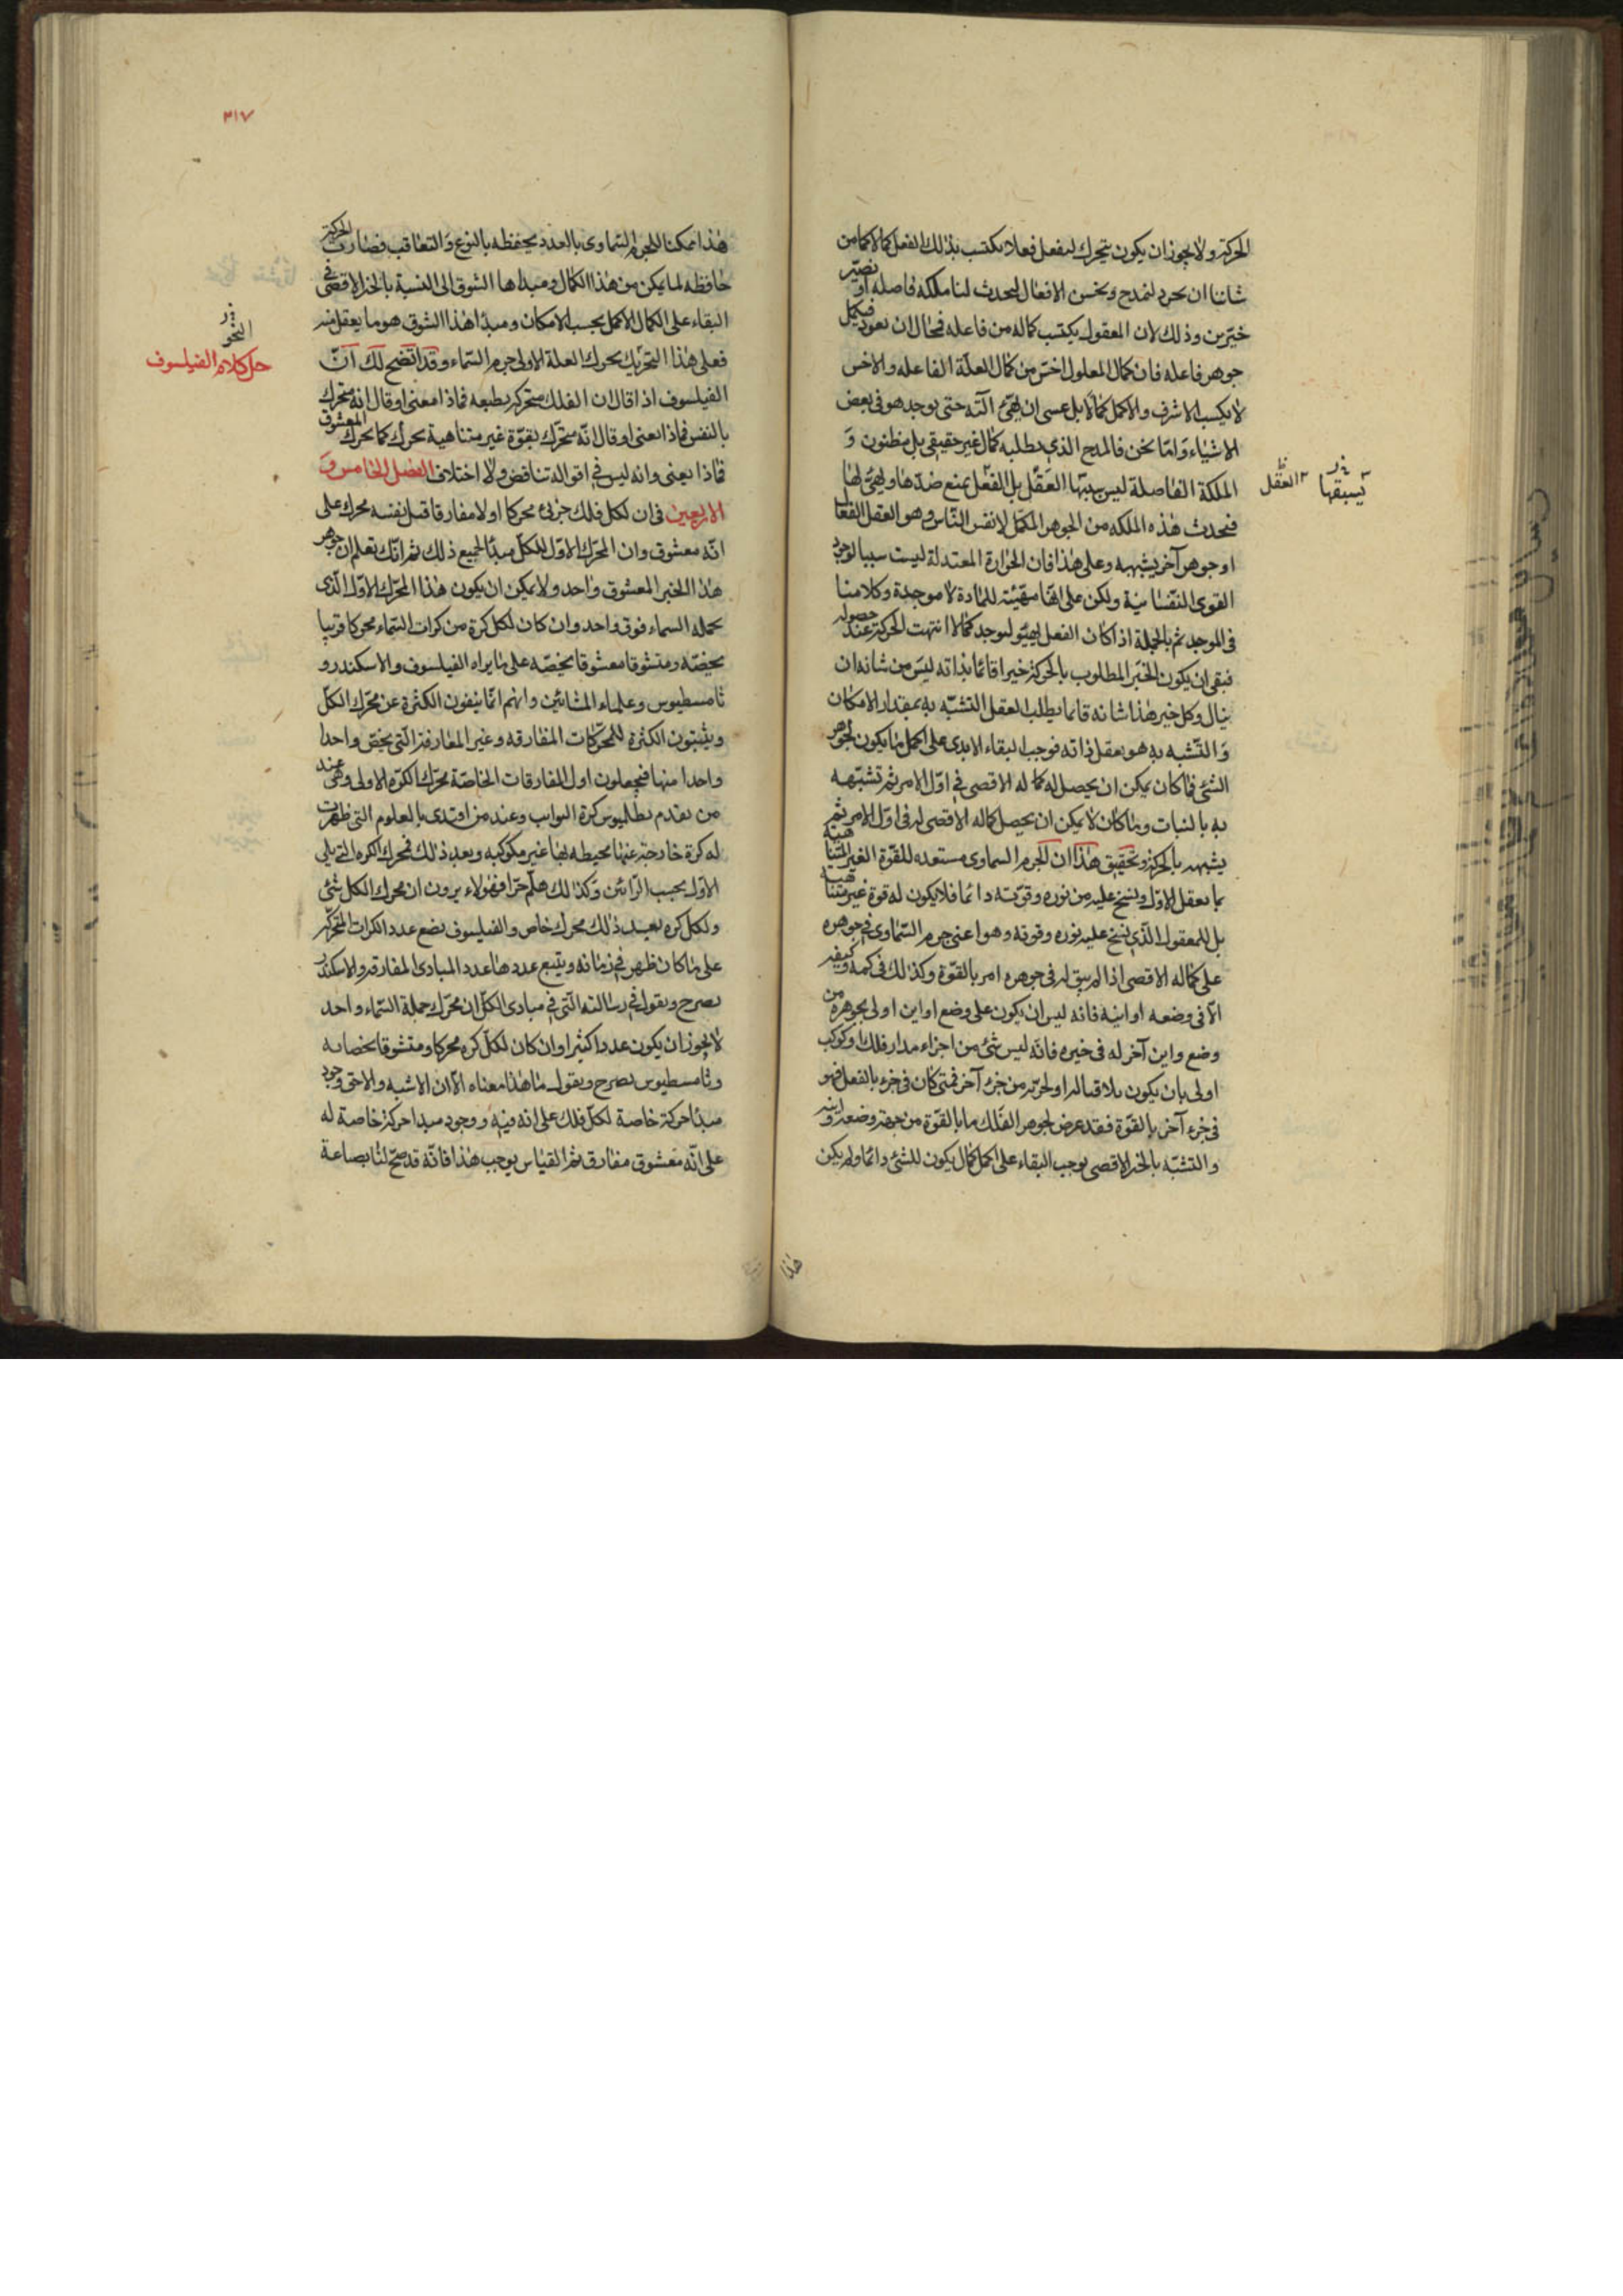 الحركة ولا يجوز ان يكون يتحرك ليفعل فعلا يكتسب بذلك الفعل كمالا كما من
شاننا ان نجود لنمدح ونحسن الافعال ليحدث لنا ملكه فاضله او نصير
خيّرين وذلك لان المعقول يكتسب كماله من فاعله فمحال ان يعود فيكمل
جوهر فاعله فان كمال المعلول اخسّ من كمال العلّة الفاعله والاخس
لا يكسب الاشرف والاكمل كمالا بل عسى ان يهيّئ آلته حتى يوجد هو في بعض
الاشياء وامّا نحن فالمدح الذي نطلبه كمال غير حقيقي بل مظنون و
الملكة الفاضلة ليس سببها العقل بل الفعل يمنع ضدّها ويهيّئ لها
يسبقها
العقل
فيحدث هذه الملكه من الجوهر المكمّل لانفس النّاس وهو العقل الفعّال
او جوهر آخر يشبهه وعلى هذا فان الحرارة المعتدلة ليست سببا لوجود
القوى النّفسانيّة ولكن على انّها مهيّئه للمادة لا موجدة وكلامنا
في الموجد ثم بالجملة اذا كان الفعل يهيّئ ليوجد كمالا انتهت الحركة عند حصوله
فبقى ان يكون الخير المطلوب بالحركة خيرا قائما بذاته ليس من شانه ان
ينال وكل خير هذا شانه فانما يطلب العقل التشبّه به بمقدار الامكان
والتّشبه به هو بعقل ذاته فوجب البقاء الابدى على اكمل ما يكون لجوهر
الشئ فما كان يمكن ان يحصل له كماله الاقصى في اوّل الامر ثم تشبّهه
به بالثبات وما كان لا يمكن ان يحصل كماله الاقصى له في اوّل الامر ثم
يشبهه بالحركة وتحقيق هذا ان الجرم السماوى مستعده للقوّة الغير المتناهية
بما يعقل الاوّل ويسنح عليه من نوره وقوّته دائما فلا يكون له قوة غير متناهية
بل للمعقول الّذي يسنح عليه نوره وقوته وهو اعنى جرم السّماوى في جوهره
على كماله الاقصى اذا لم يبق له في جوهره امر بالقوّة وكذلك في كمه وكيفه
الّا في وضعه او اينه فانه ليس ان يكون على وضع او اين اولى بجوهره من
وضع واين آخر له في حيزه فانّه ليس شئ من اجزاء مدار فلك او كوكب
اولى بان يكون ملاقيا له او لجزئه من جزء آخر فمتى كان في جزء بالفعل فهو
في جزء آخر بالقوّة فقد عرض لجوهر الفلك ما بالقوّة من جهة وضعه واينه
والتشبّه بالخير الاقصى يوجب البقاء على اكمل كمال يكون للشئ دائما ولم يكن
هذا
٣١٧
هذا ممكنا للجرم السّماوى بالعدد يحفظه بالنوع والتعاقب فصارت الحركة
حافظه لما يمكن من هذا الكمال ومبداها الشوق الى التشبه بالخير الاقصى في
البقاء على الكمال الاكمل بحسب الامكان ومبدأ هذا الشوق هو ما يعقل منه
النحو
فعلى هذا التحريك يحرك العلة الاولى جرم السّماء وقد اتّضح لك انّ
حل كلام الفيلسوف
الفيلسوف اذا قال ان الفلك متحرك بطبعه فماذا معنى او قال انه متحرك
بالنفس فماذا يعنى او قال انّه متحرّك بقوّة غير متناهية يحرك كما يحرك المعشوق
فماذا يعنى وانه ليس في اقواله تناقض ولا اختلاف الفصل الخامس و
الاربعين في ان لكل فلك جزئى محركا اولا مفارقا قبل نفسه محرك على
انّه معشوق وان المحرّك الاوّل للكلّ مبدأ لجميع ذلك ثم انّك تعلم ان جوهر
هذا الخير المعشوق واحد ولا يمكن ان يكون هذا المحرّك الاوّل الّذى
لجملة السماء فوق واحد وان كان لكل كرة من كرات السّماء محركا قريبا
يخصّه ومتشوقا معشوقا يخصّه على ما يراه الفيلسوف والاسكندر و
ثامسطيوس وعلماء المشائين وانهم انّما ينفون الكثرة عن محرّك الكلّ
ويثبتون الكثرة للمحرّكات المفارقه وغير المفارقة الّتى يختصّ واحدا
واحدا منها فيجعلون اول المفارقات الخاصّة محرّك الكرّه الاولى وهى عند
من تقدم بطلميوس كرة الثوابت وعند من اقتدى بالعلوم التى ظهرت
له كرة خارجة عنها محيطه بها غير مكوكبه وبعد ذلك محرك الكره التى يلي
الاوّل بحسب الرأيين وكذلك هلم جرّا فهؤلاء يرون ان محرك الكل شئ
ولكل كره بعد ذلك محرك خاص والفيلسوف يضع عدد الكرات المتحركة
على ما كان ظهر في زمانه ويتبع عددها عدد المبادى المفارقة والاسكندر
يصرح ويقول في رسالته الّتى في مبادى الكلّ ان محرّك جملة السّماء واحد
لا يجوز ان يكون عددا كثيرا وان كان لكلّ كره محركا ومتشوقا يخصانه
وثامسطيوس يصرح ويقول ما هذا معناه الّا ان الاشبه والاحق وجود
مبدأ حركة خاصة لكلّ فلك على انه فيه ووجود مبدأ حركة خاصة له
على انّه معشوق مفارق ثم القياس يوجب هذا فانّه قد صحّ لنا بصناعة